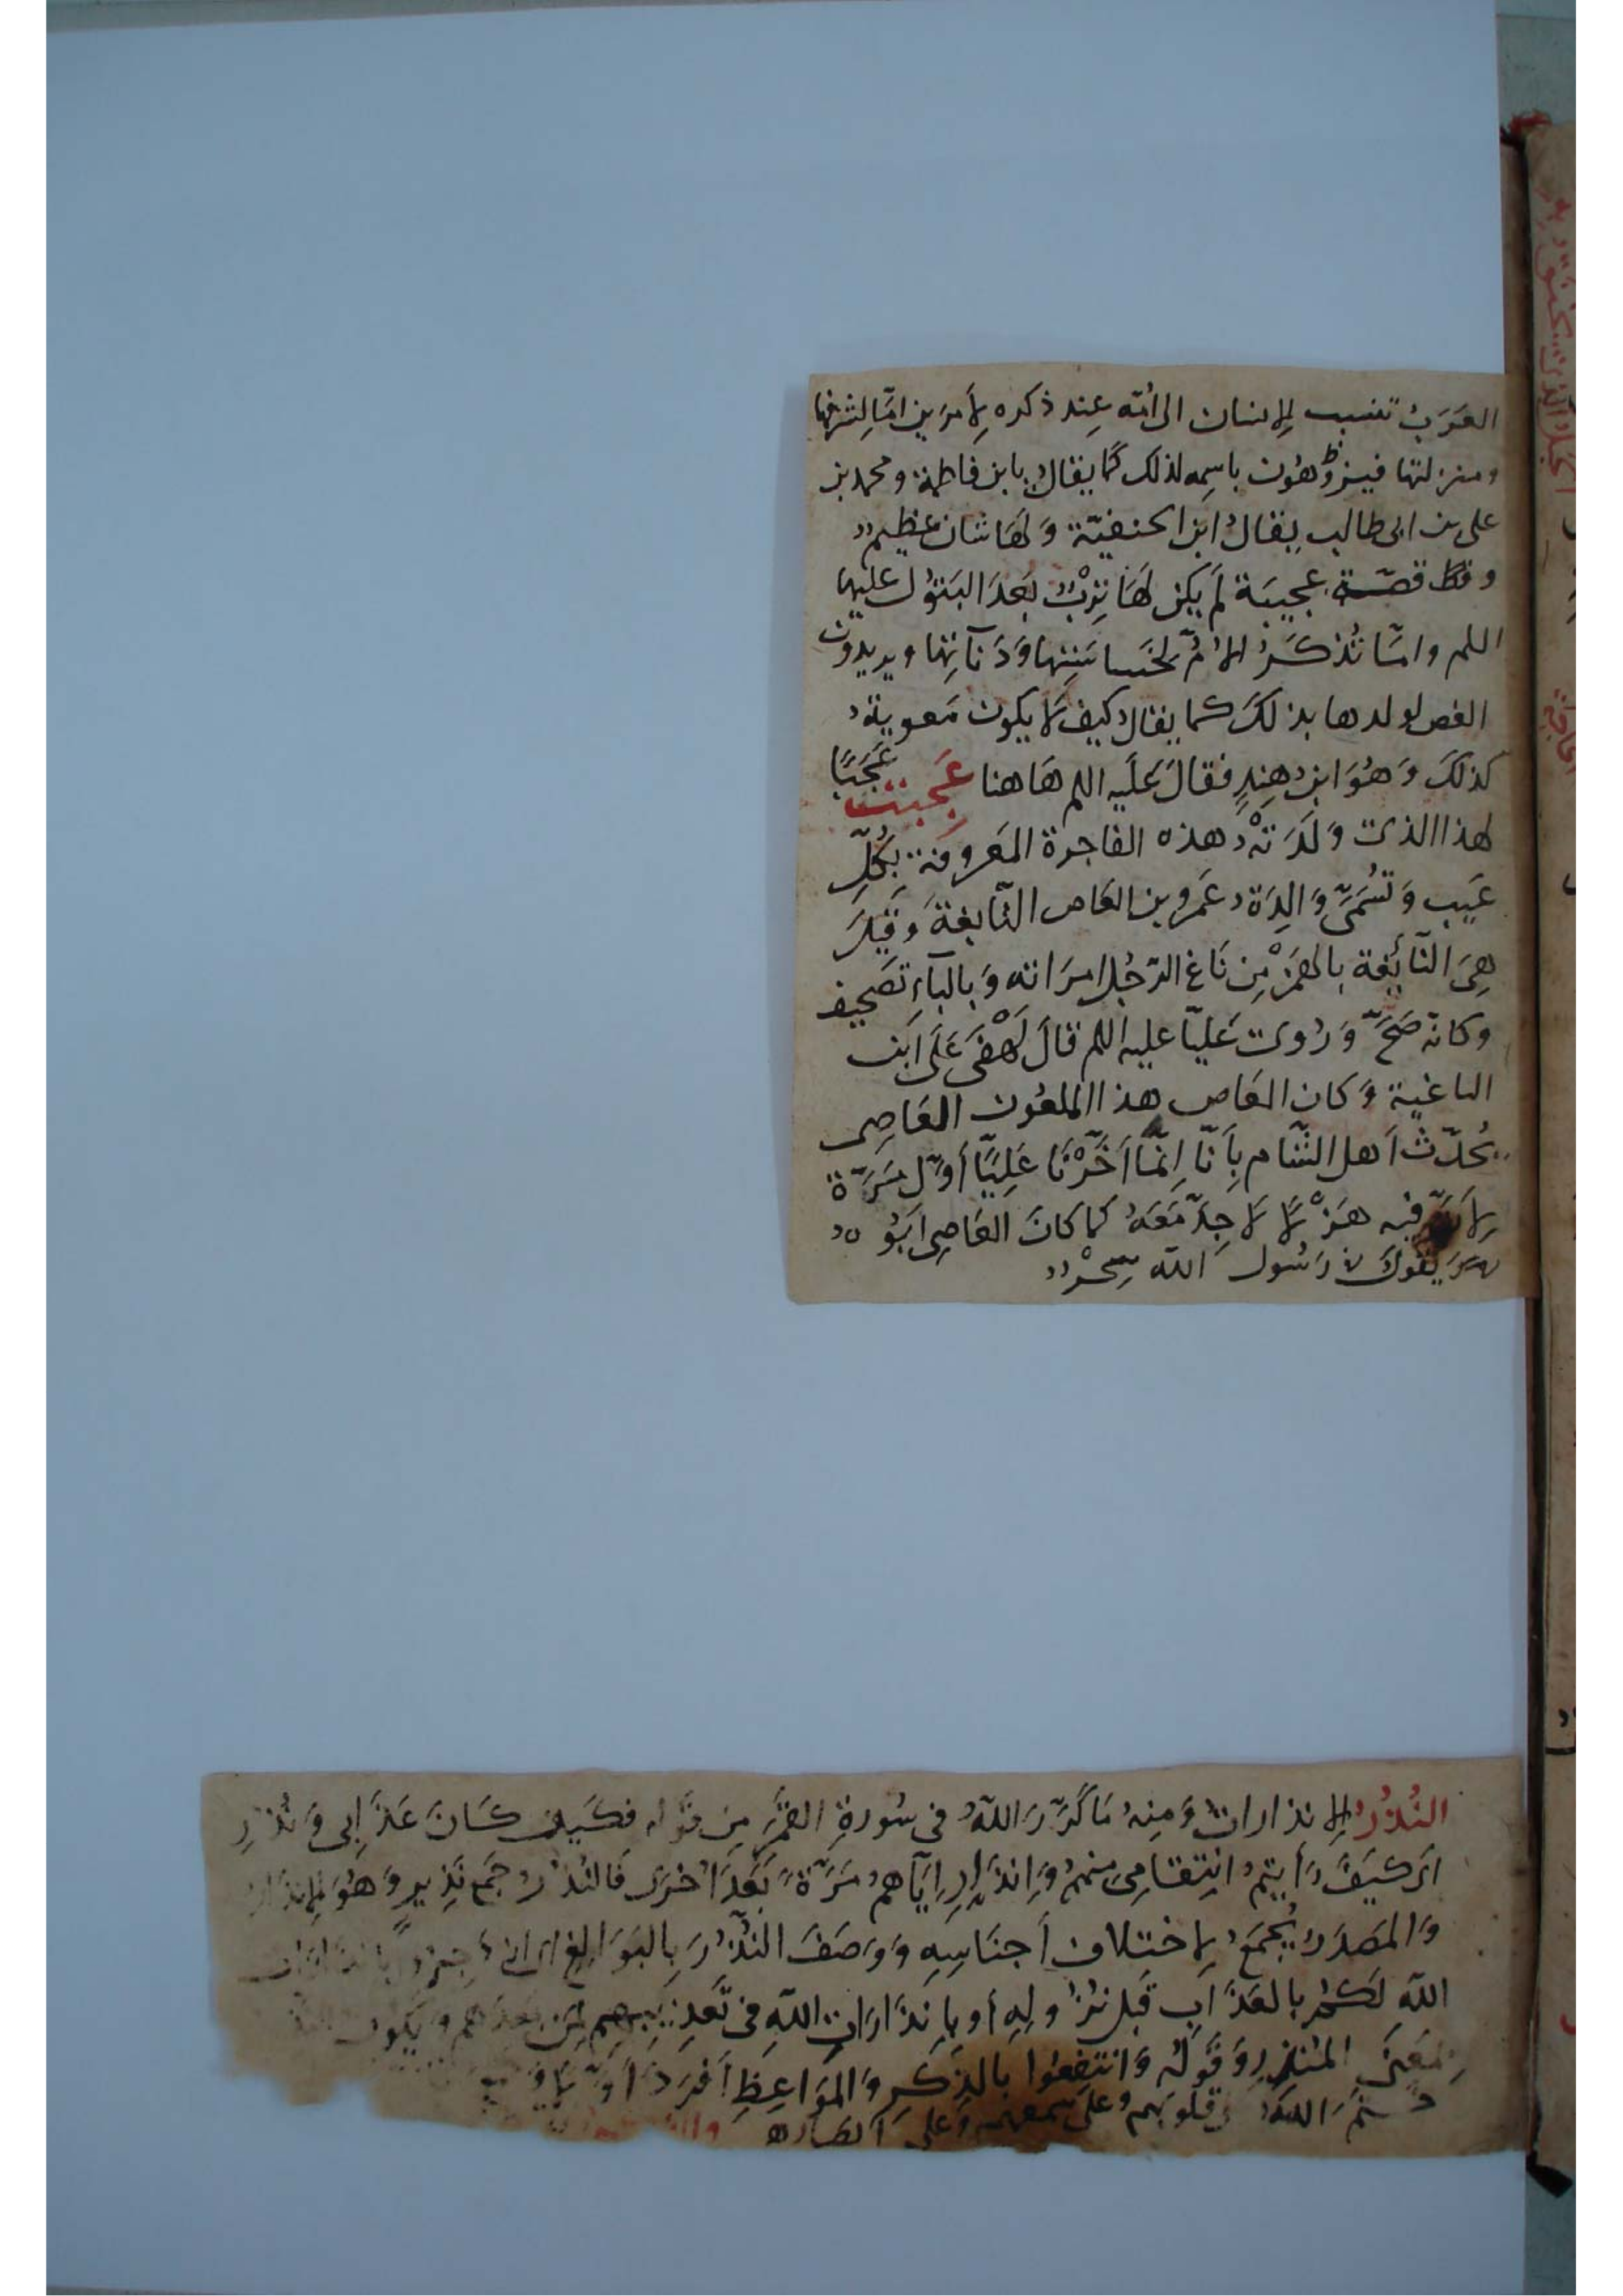 العَرَبُ تنسب الإنسان الى أمّه عِند ذكره لِأمرين امّا لشرفها
ومنزلتها فينوّهون باسمه لذلك كما يقال يا بن فاطمة ومحمد بن
على بن ابى طالب يقالُ ابن الحنفيّة وَلهَا شان عظيم
قصّة عجيبَة لم يكن لهَا تِرْبٌ بَعدَ البَتوُل عليها
اللم وامّا تُذكَرُ الأمّ لخسَاسَتِهَا وَدَنآئتِها ويريدون
الغص لولدها بذلكَ كما يقال كيف لا يكون مَعوية
كذلكَ وَهُوَ ابن هِندٍ فقالَ عَلَيه اللم هَاهنا عَجِبتُ عَجَبًا
لهذا الذى وَلَدَتْهُ هذه الفاجرة المَعروفة بِكُلِّ
عَيبٍ وَتُسَمَّى وَالِدَة عَمرو بن العَاص النّابغة وَقِيلَ
هِىَ النّائِغة بالهَمْز مِن نَاغ الرّجُل امرَاته وَبالبَآءِ تصَحيف
وكانّه صَحَّ وَرُوى عَليّا عليه اللم قالَ لَهْفِى عَلَى ابن
الباغية وَكان العَاص هذا الملعُون العَاصِى
يُحدّث اَهل الشّام بِأَنّا اِنمّا اَخَّرْنَا عَلِيًّا أوّل مَرَّة
لِأَنّ فيه هَزْلًا لا جِدّ مَعَهُ كما كانَ العَاصِى ابَوُه
يَقولُ لِرَسُول اللّه سِحْرٌ
النُذُرُ الإنذارات وَمِنهُ مَا كَرَّرَ اللّهُ فى سُورةِ القمَر مِن قَوله فكَيفَ كَانَ عَذَابِى وَنُذُرِ
اى كيفَ رَأيتم انِتقامِى منهم وَاِنذَارِ اِيّاهم مَرَّةً بَعدَ اُخرَى فَالنُذُر جَمع نَذِيرٍ وَهُوَ الإنذَار
وَالمَصدَر يُجمَعُ لاختلاف اَجنَاسِهِ وَوَصَفَ النُّذُرَ بِالبَوَالِغ
اللّهِ لكُم بالعَذَاب قَبل نزُولِهِ أو بِاِنذَارَاتِ اللّهِ فى تَعذِيبِهِم لِمَن بَعدَهم وَيَكون
بِمَعنَى المُنذِرِ وَقَولُه وَانتفعُوا بالذِكرِ وَالمَوَاعِظِ
خَتَمَ اللّهُ قلوبهم وَعلى سَمعهم وَعلى اَبصَاره